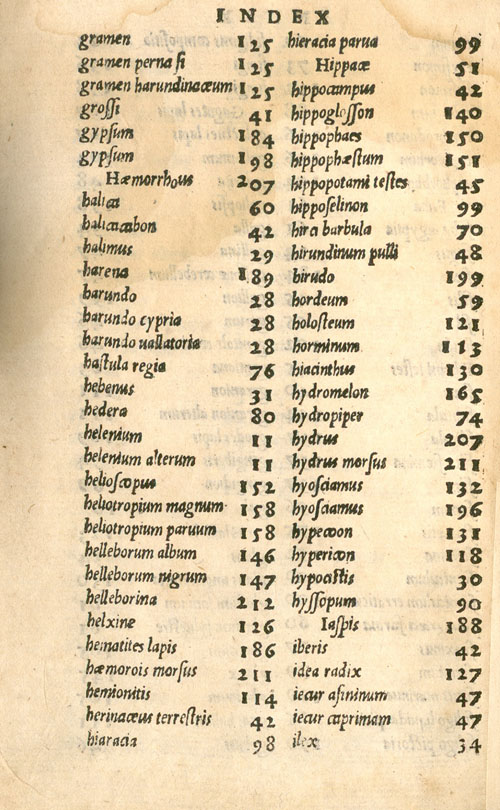 INDEX
gramen 125
gramen perna si 125
gramen harundinaceum 125
grossi 41
gypsum 184
gypsum 198
Hæmorrhous 207
halica 60
halicacabon 42
halimus 29
harena 189
harundo 28
harundo cypria 28
harundo uallatoria 28
hastula regia 76
hebenus 31
hedera 80
helenium 11
helenium alterum 11
helioscopus 152
heliotropium magnum 158
heliotropium paruum 158
helleborum album 146
helleborum nigrum 147
helleborina 212
helxine 126
hematites lapis 186
hæmorois morsus 211
hemionitis 114
herinaceus terrestris 42
hiaracia 98
hieracia parua 99
Hippace 51
hippocampus 42
hippoglosson 140
hippophaes 150
hippophæstum 151
hippopotami testes 45
hipposelinon 99
hirci barbula 70
hirundinum pulli 48
hirudo 199
hordeum 59
holosteum 121
horminum 113
hiacinthus 130
hydromelon 165
hydropiper 74
hydrus 207
hydrus morsus 211
hyosciamus 132
hyosciamus 196
hypecoon 131
hypericon 118
hypocistis 30
hyssopum 90
Iaspis 188
iberis 42
idea radix 127
iecur asininum 47
iecur caprimam 47
ilex 34